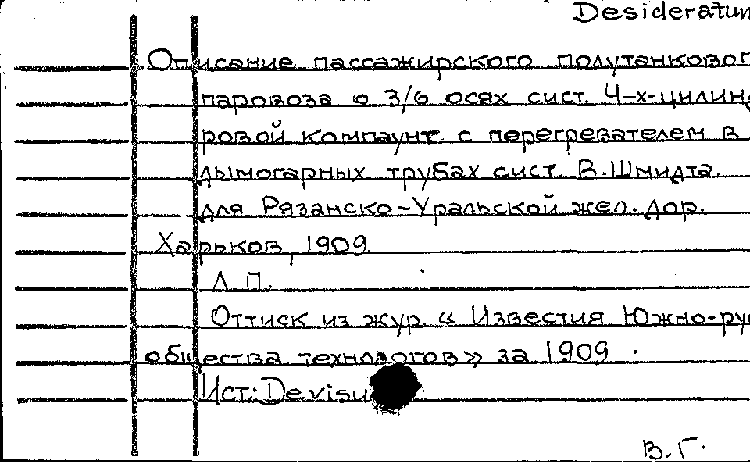 Desideratum
Описание пассажирского полутанкового
паровоза о 3/6 осях сист. 4-х-цилинд
ровой компаунт. с перегревателем в
дымогарных трубах сист. В. Шмидта.
для Рязанско-Уральской жел. дор.
Харьков, 1909.
Л П.
Оттиск из жур. « Известия Южно-рус
общества технологов» за 1909.
Ист: De visu
В. Г.